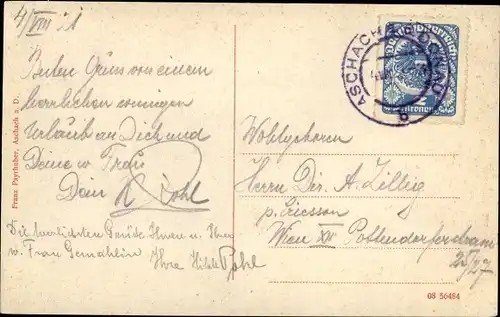 4/VIII
Besten Gruss von einem
herrlichen sonnigen
Urlaub an Dich und
Deine w. Frau
Dein Pohl
Die herzlichsten Grüsse Ihnen u. Ihrer
w. Frau Gemahlin
Ihre Hilde Pohl
Franz Payrhuber, Aschach a. D.
ASCHACH DONAU
b
Deutschösterreich
Kronen
Wohlgeboren
Herrn Dir. A. Zillig
p. Ericsson
Wien XII Pottendorferstrasse
25/27
08 56484